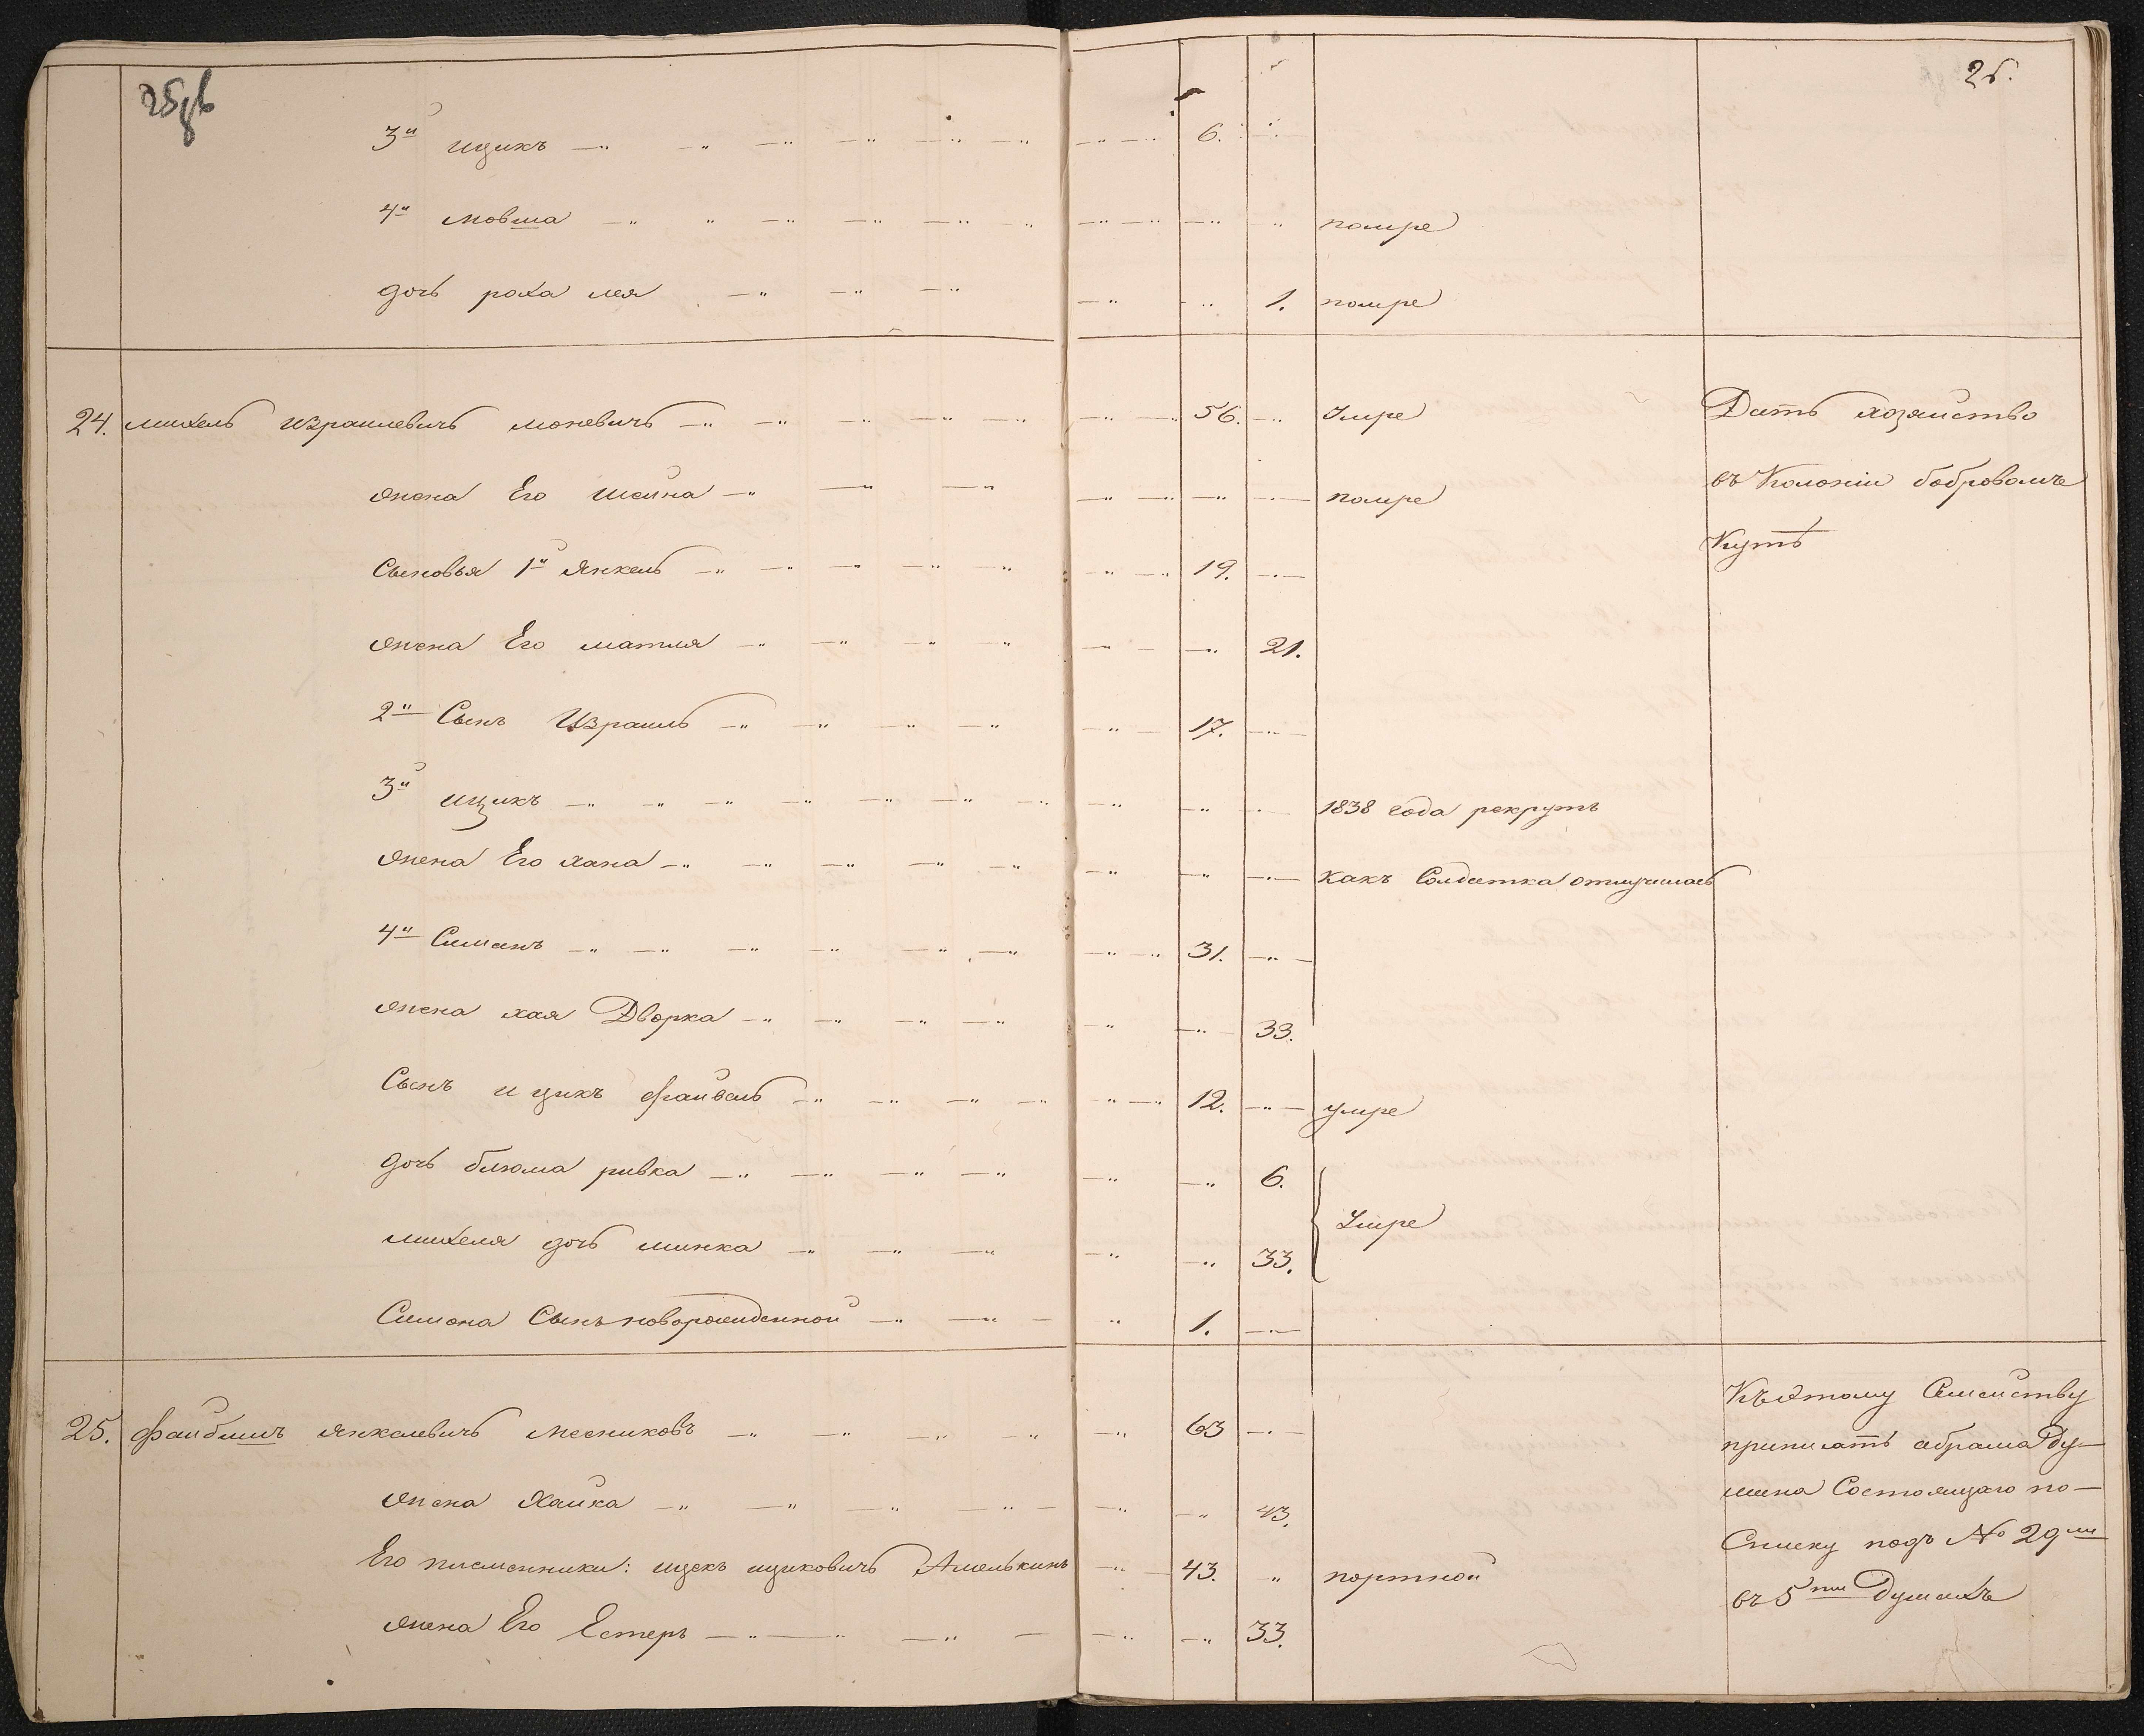 25об
26.
3й ицикъ — 6.
4й мовша — помре
дочь раха лея — 1. помре
24. михель израилевичъ моневичъ — 56. — Умре Дать хозяйство
жена Его шейна — помре въ Колоніи бобровомъ
Сыновья 1й Янкель — 19. Кутѣ
жена Его матля — 21.
2й Сынъ Израиль — 17.
3й ицикъ — 1838 года рекрутъ
жена Его хана — какъ Солдатка отлучилась
4й Симонъ — 31.
жена хая Дворка — 33.
Сынъ ицикъ файвель — 12. — умре
дочь блюма ривка — 6.
михеля дочь минка — 33. Умре
Симона Сынъ новорожденной — 1.
25. файбишъ янкелевичъ месниковъ — 63 — Къ этому Семейству
приписать абрама
жена Хайка — 43. Состоящаго по
Его племенники: ицекъ ицковичъ Амелькинъ — 43. портной Списку подъ № 29мъ
жена Его Естеръ — 33. въ 5ти Душахъ